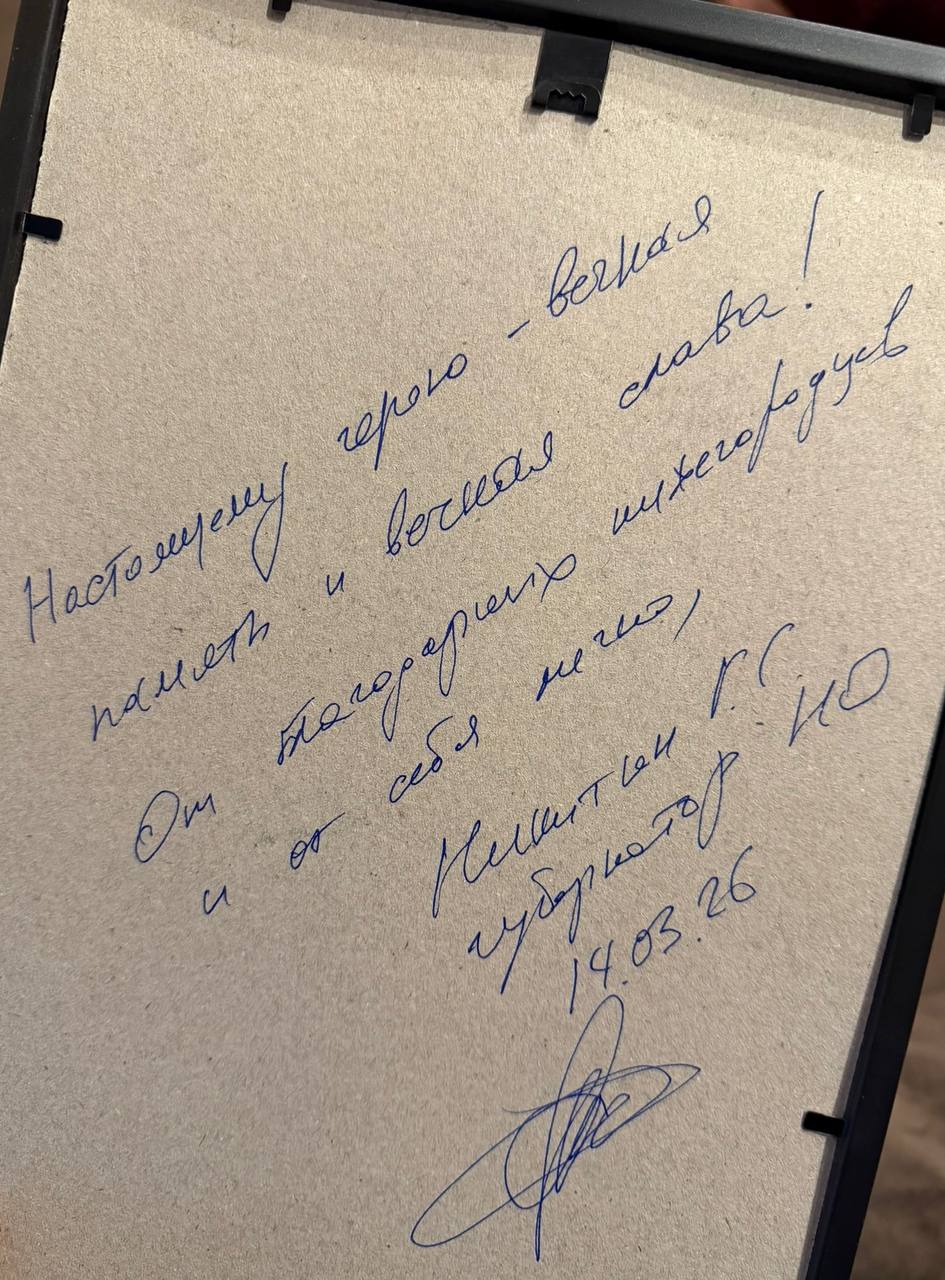 Настоящему герою - вечная
память и вечная слава!
От благодарных нижегородцев
и от себя лично,
Никитин Г.С.
губернатор НО
14.03.26